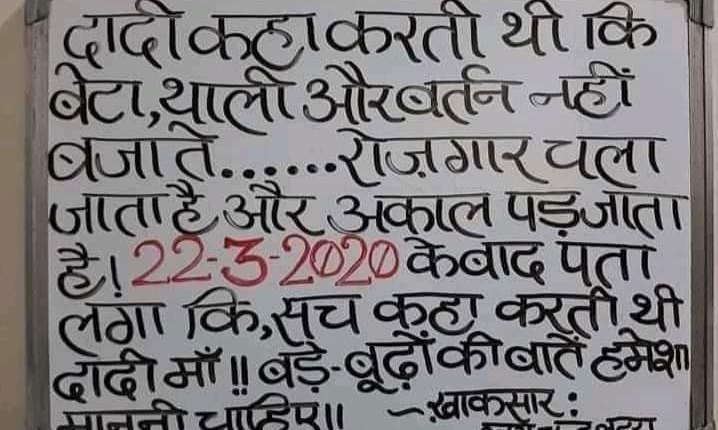 दादी कहा करती थी कि
बेटा, थाली और बर्तन नहीं
बजाते......रोज़गार चला
जाता है और अकाल पड़ जाता
है! 22-3-2020 के बाद पता
लगा कि, सच कहा करती थी
दादी माँ!! बड़े-बूढ़ों की बातें हमेशा
माननी चाहिए।। ~ख़ाकसार: